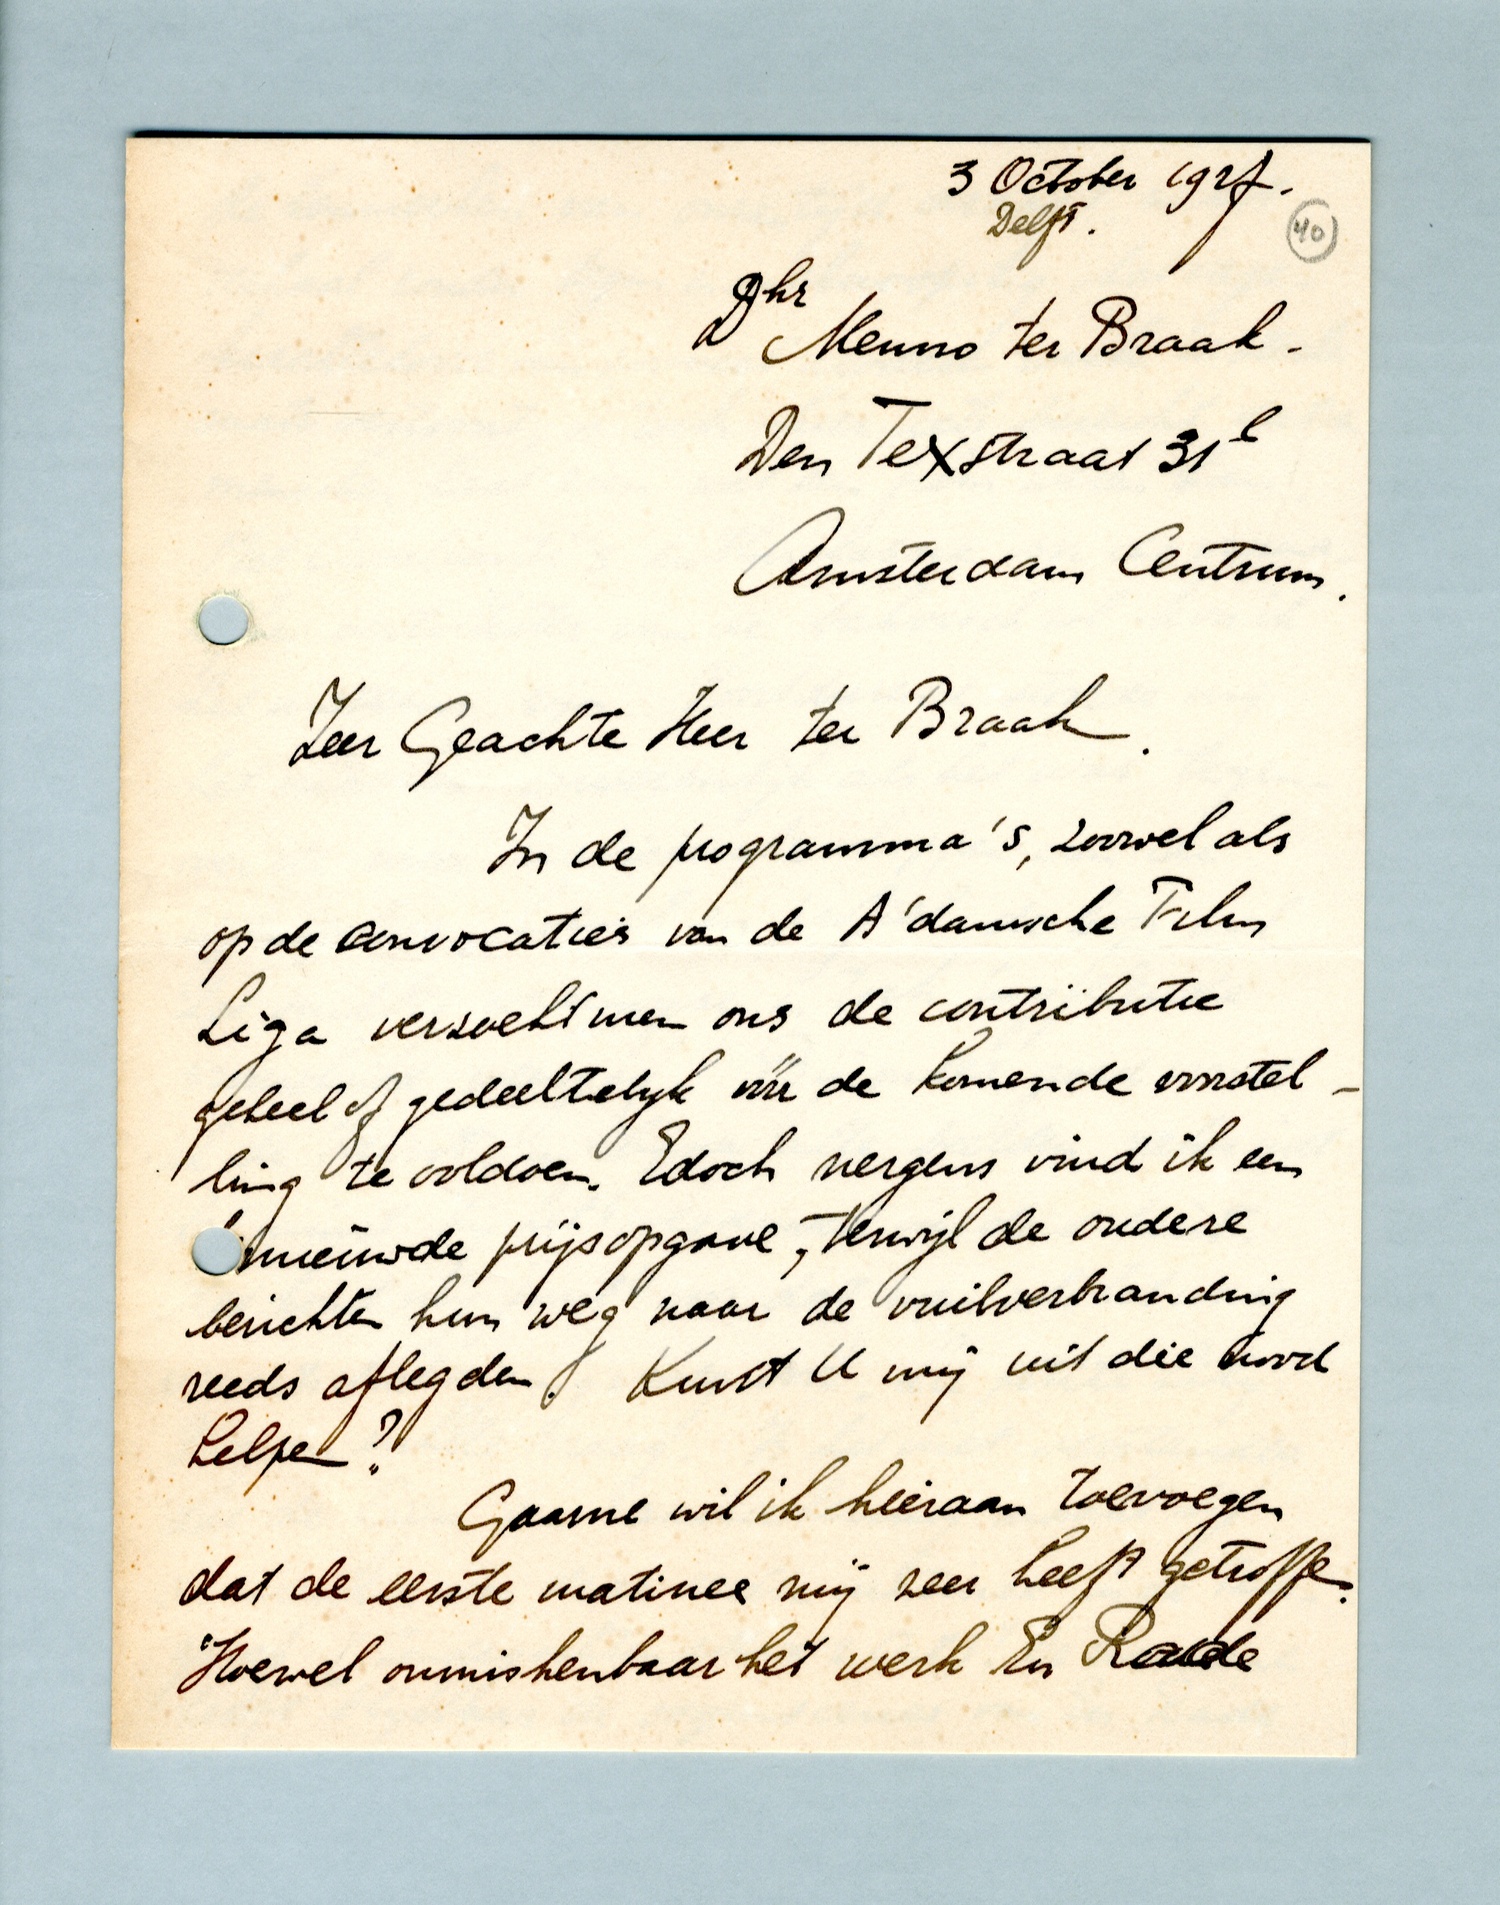 3 October 1927.
Delft.
40
Dhr
Menno ter Braak.
Den Texstraat 31
Amsterdam Centrum.
Zeer Geachte Heer ter Braak.
In de programma's, zoowel als
op de convocaties van de A'damsche Film
Liga verzoekt men ons de contributie
geheel of gedeeltelyk vóór de komende voorstel-
ling te voldoen. Edoch nergens vind ik een
nieuwde prijsopgave, terwijl de oudere
berichten hun weg naar de vuilverbranding
reeds aflegden. Kunt U mij uit die nood
helpen?
Gaarne wil ik hieraan toevoegen
dat de eerste matinee mij zeer heeft getroffen.
Hoewel onmiskenbaar het werk En Rade